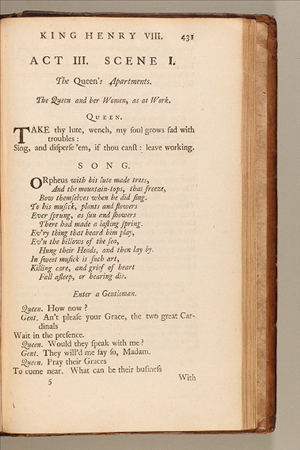 KING HENRY VIII. 431
ACT III. SCENE I.
The Queen's Apartments.
The Queen and her Women, as at Work.
QUEEN.
TAKE thy lute, wench, my ſoul grows ſad with
troubles:
Sing, and diſperſe 'em, if thou canſt: leave working.
SONG.
ORpheus with his lute made trees,
And the mountain-tops, that freeze,
Bow themſelves when he did ſing.
To his muſick, plants and flowers
Ever ſprung, as ſun and ſhowers
There had made a laſting ſpring.
Ev'ry thing that heard him play,
Ev'n the billows of the ſea,
Hung their Heads, and then lay by.
In ſweet muſick is ſuch art,
Killing care, and grief of heart
Fall aſleep, or hearing die.
Enter a Gentleman.
Queen. How now?
Gent. An't pleaſe your Grace, the two great Car-
dinals
Wait in the preſence.
Queen. Would they ſpeak with me?
Gent. They will'd me ſay ſo, Madam.
Queen. Pray their Graces
To come near. What can be their buſineſs
5 With